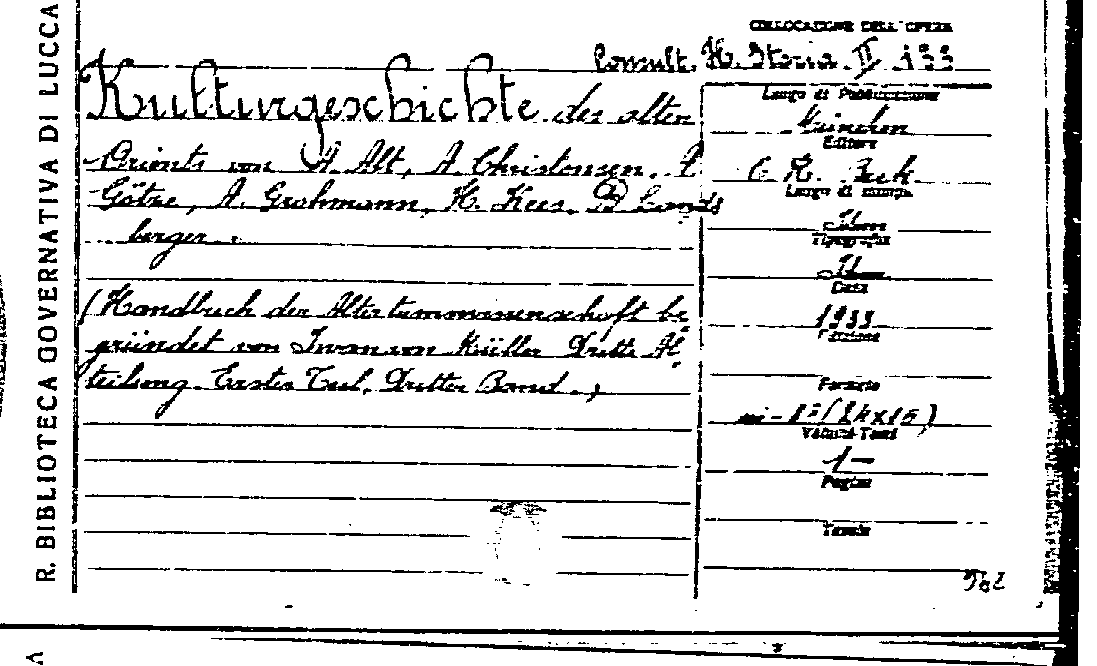 R. BIBLIOTECA GOVERNATIVA DI LUCCA
COLLOCAZIONE DELL'OPERA
Consult. H. Storia. II. 133
Kulturgeschichte des alten
Orients von A. Alt, A. Christensen, A.
Götze, A. Grohmann, H. Kees, B Lands
berger.
(Handbuch der Altertumswissenschaft be
gründet von Iwan von Müller Dritte Ab
teilung. Erster Teil. Dritter Band.)
Luogo di Pubblicazione
München
Editore
C. H. Beck
Luogo di stampa
Tipografia
Data
1933
Edizione
Formato
in-1°(24x15)
Volumi-Tomi
1-
Pagine
Tavole